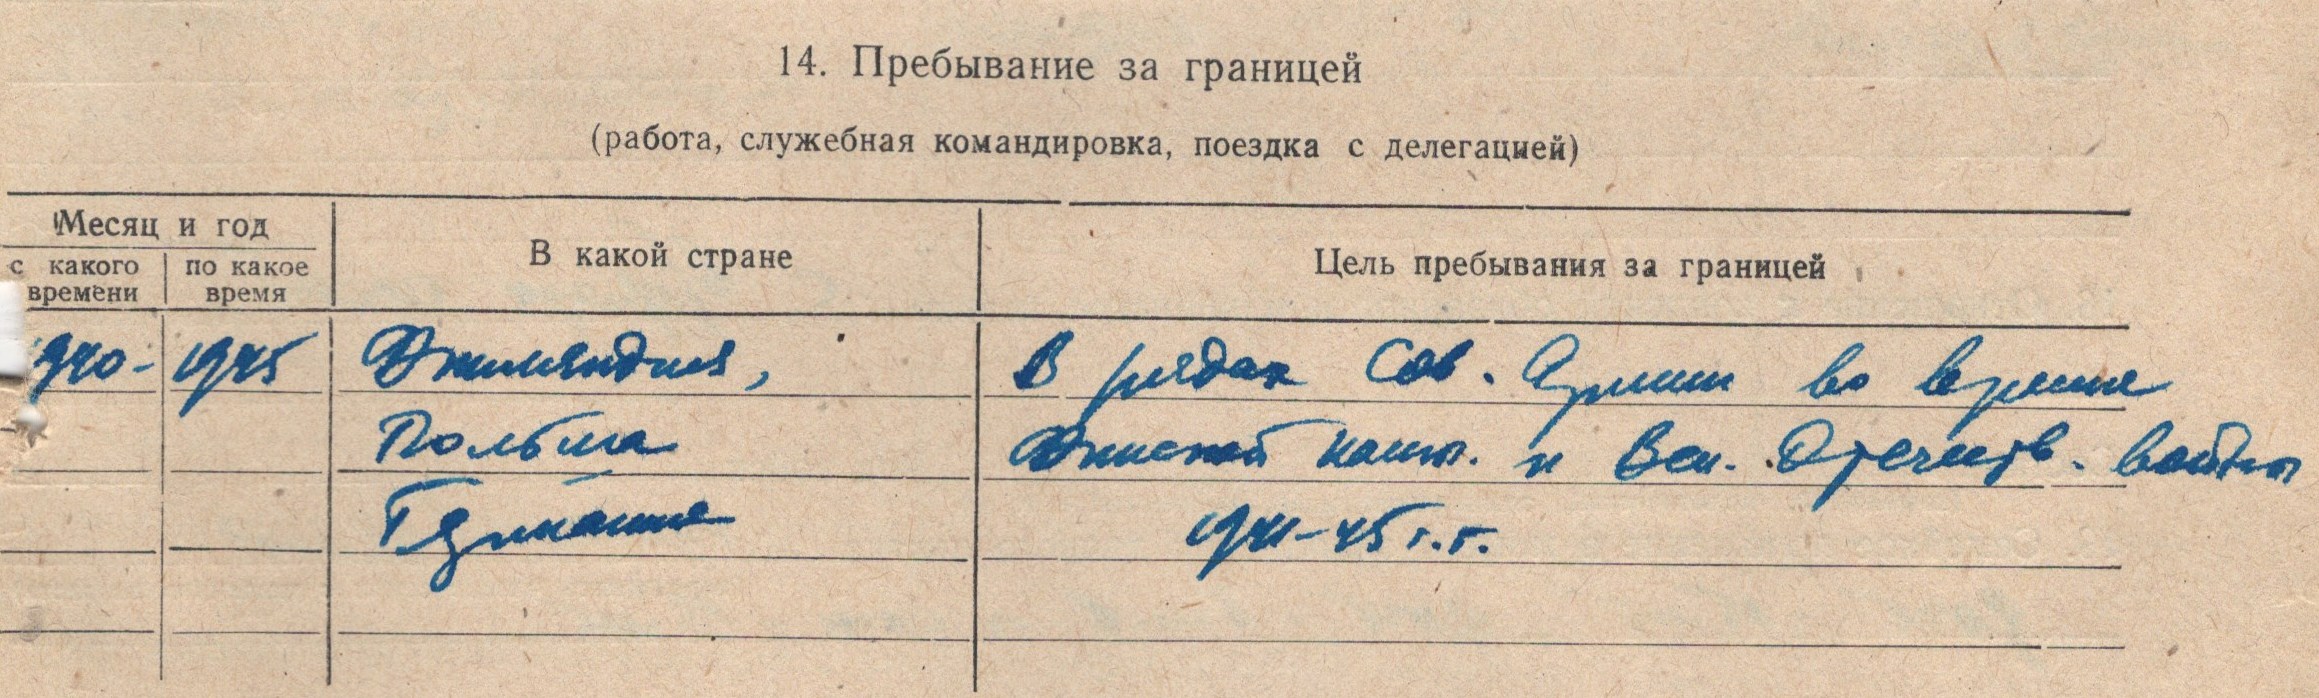 14. Пребывание за границей
(работа, служебная командировка, поездка с делегацией)
Месяц и год
с какого времени
по какое время
В какой стране
Цель пребывания за границей
940- 1945 Финляндия, В рядах Сов. Армии во время
Польша Финской и Вел. Отечеств. войны
Германия 1941-45 г.г.